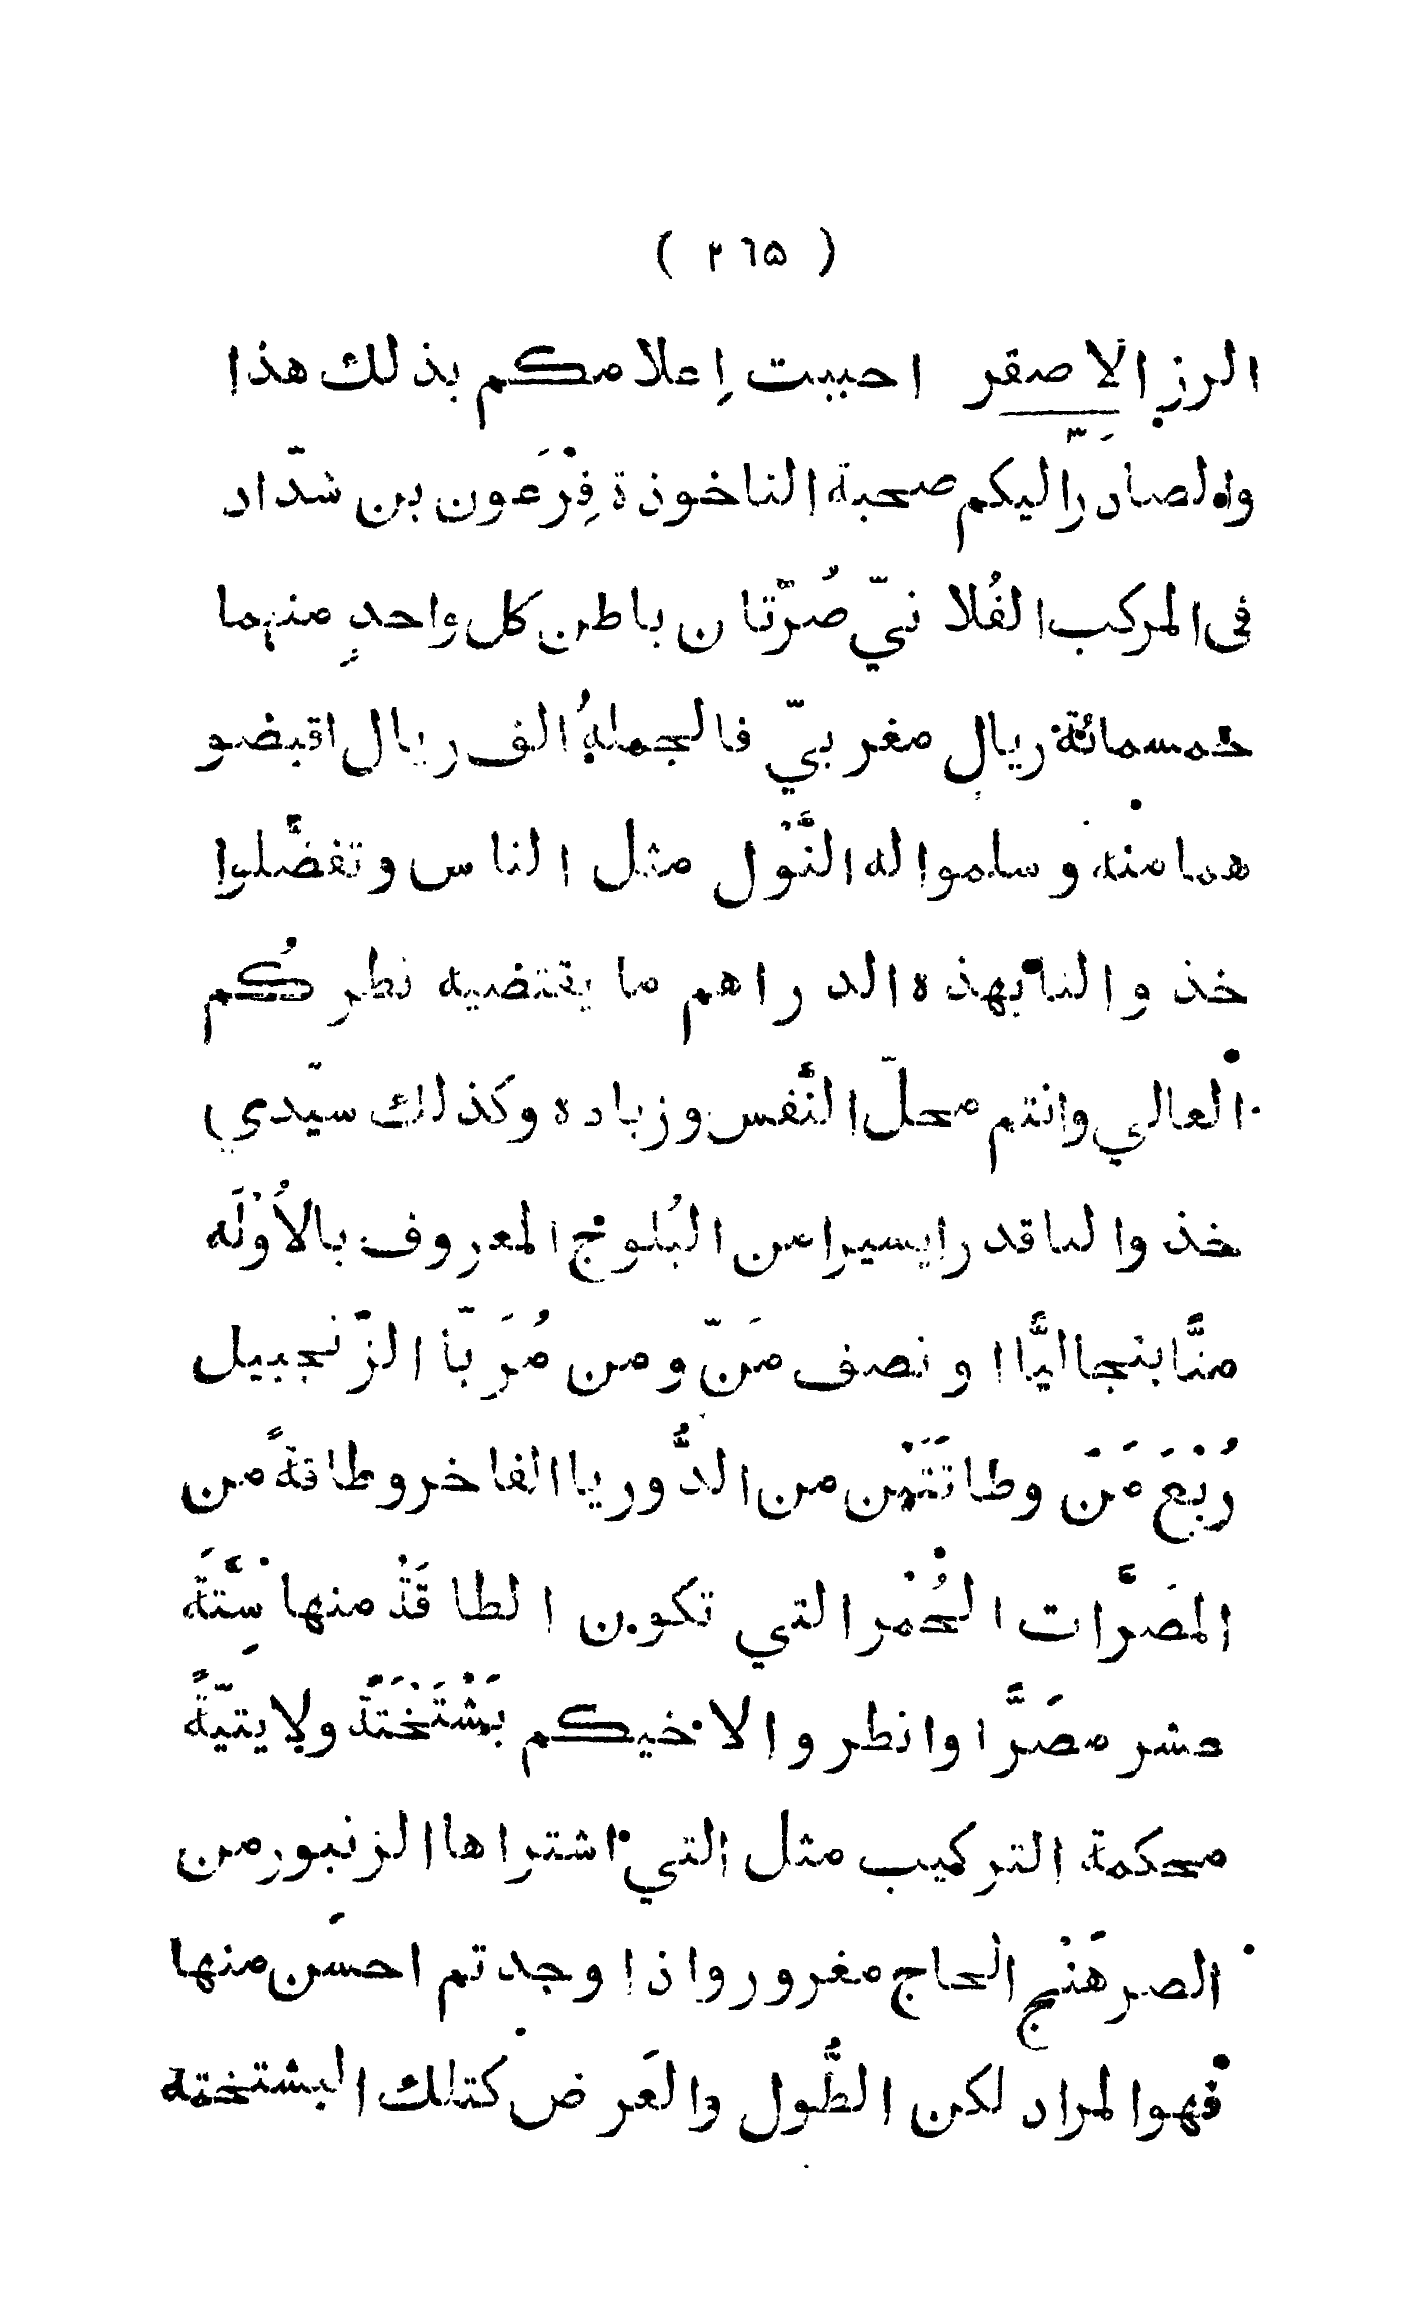 ( ٢٦٥ )
الرز الاصقر احببت إعلامكم بذلك هذا
والصادر اليكم صحبة الناخوذة فِرْعَون بن شدّاد
فى المركب الفُلانيّ صُرّتان باطن كل واحدٍ منهما
خمسمائة ريالٍ مغربيّ فالجملهُ الف ريال اقبضو
هما منه وسلموا له النَّوْل مثل الناس وتفضَّلوا
خذوا لنا بهذه الدراهم ما يقتضيه نطركُم
العالي وانتم محلّ النَّفس وزياده وكذلك سيّدي
خذوا لنا قدرا يسيرا من البُلوج المعروف بالاُوْلَه
منَّا بنجاليَّا او نصف مَنّ ومن مُرَبّا الزّنجبيل
رُبْعَ مَنّ وطاقَتَيْن من الدُّوريا الفاخر وطاقةً من
المَصَّرات الحُمْر التي تكون الطاقَةُ منها سِتَّةَ
عشر مصَرًّا وانطروا لاخيكم بَشْتَخْتَةً ولايتيّةً
محكمة التركيب مثل التي اشتراها الزنبور من
الصرهَنْج الحاج مغرور واذا وجدتم احسَن منها
فهو المراد لكن الطُّول والعَرض كتلك البشتخته